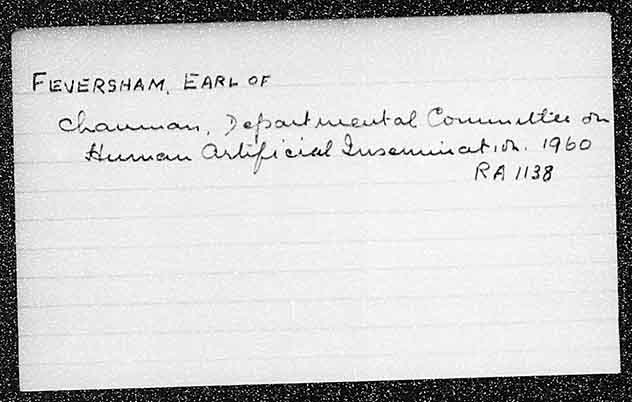 FEVERSHAM, EARL OF
Chairman, Departmental Committee on
Human Artificial Insemination. 1960
RA 1138